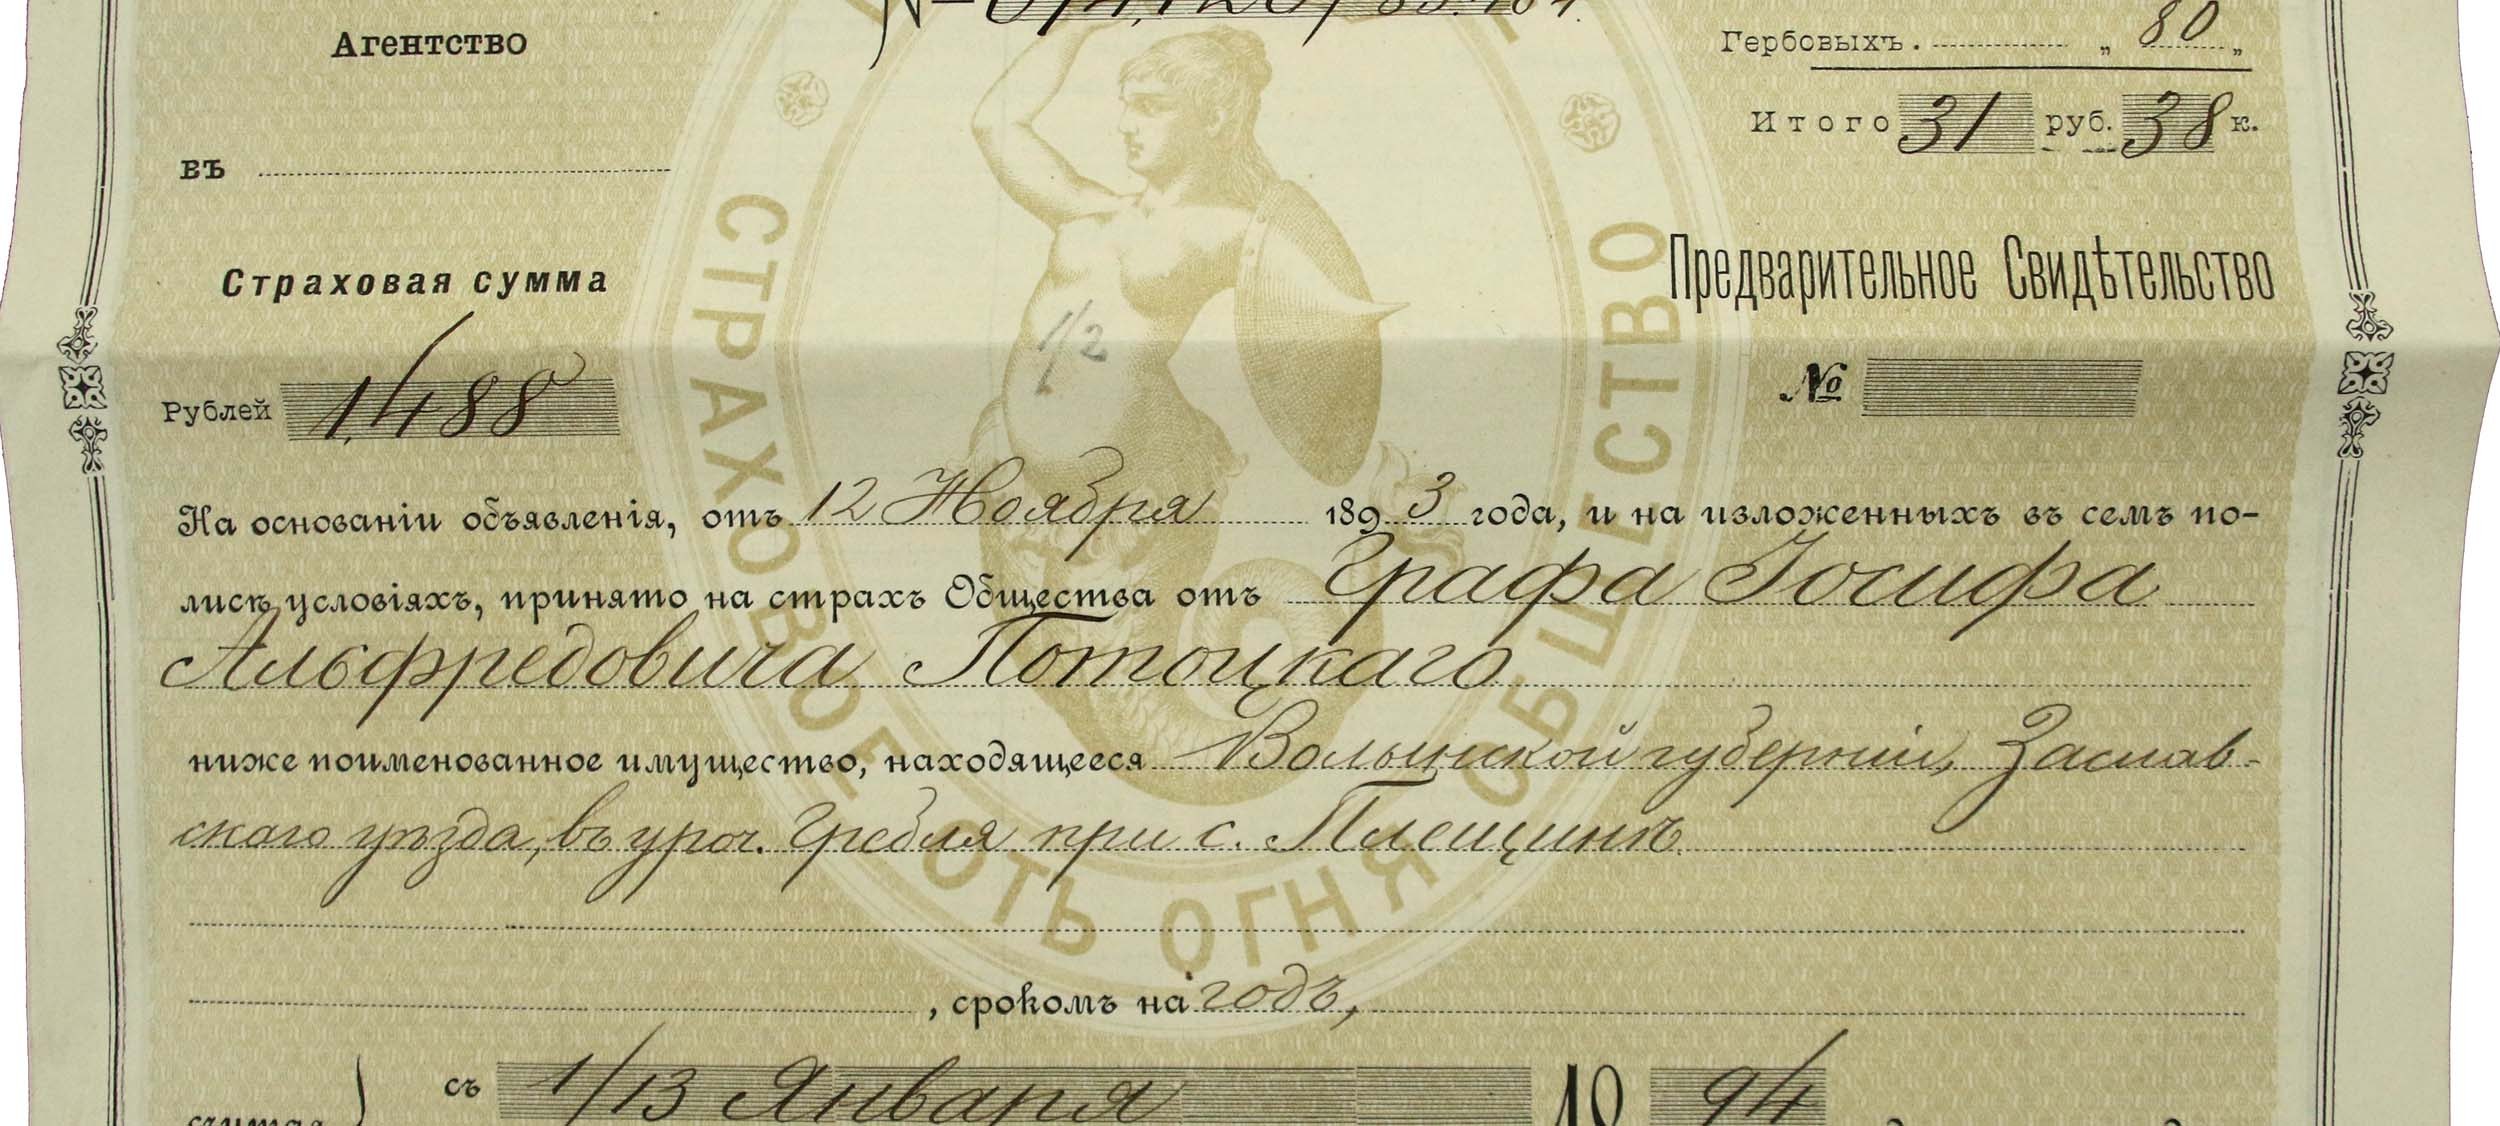 Агентство
Гербовыхъ. „ 80 „
Итого 31 руб. 38 к.
въ
Страховая сумма
Предварительное Свидѣтельство
Рублей 1,488
№
1/2
На основаніи объявленія, отъ 12 Ноября 1893 года, и на изложенныхъ въ семъ по-
лисѣ условіяхъ, принято на страхъ Общества отъ Графа Іосифа
Альфредовича Потоцкаго
ниже поименованное имущество, находящееся Волынской губерніи, Заслав-
скаго уѣзда, въ уроч. Гребля при с. Плещинѣ.
, срокомъ на годъ,
съ 1/13 Января 1894
считая
СТРАХОВОЕ ОТЪ ОГНЯ ОБЩЕСТВО